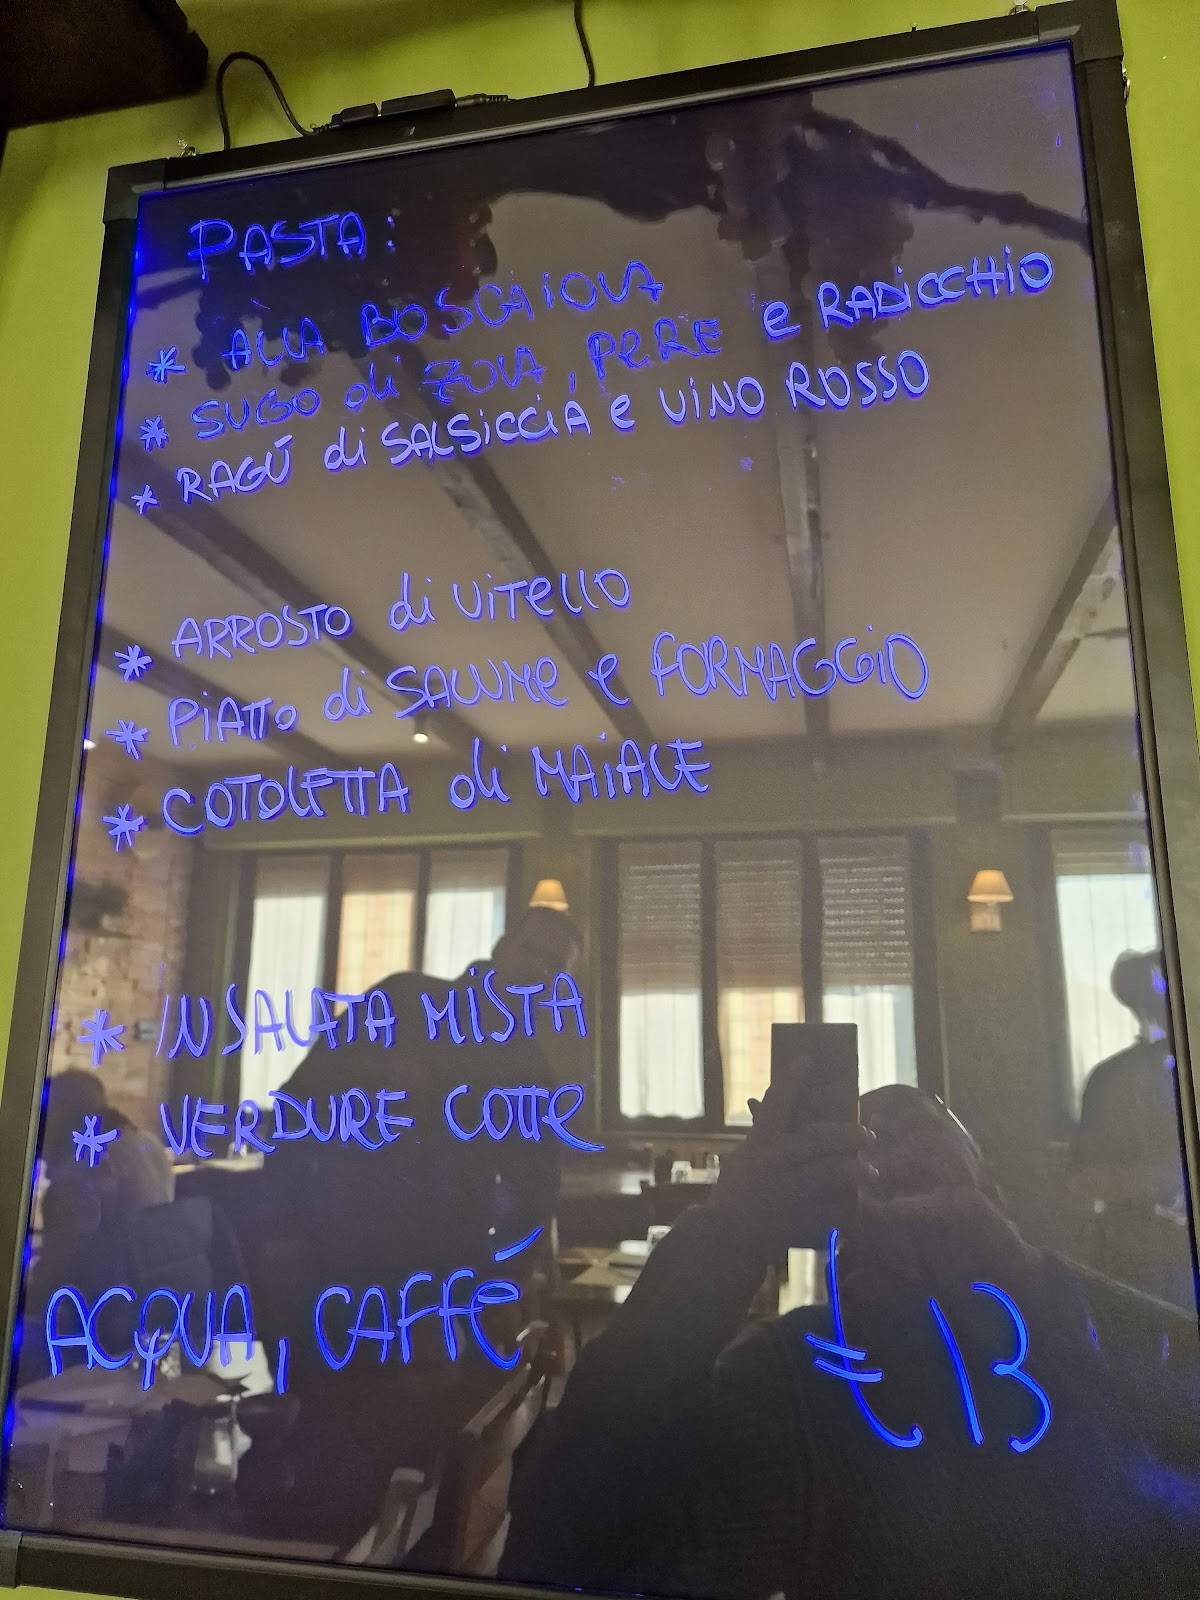 PASTA:
* ALLA BOSCAIOLA
* SUGO di ZOLA, PERE e RADICCHIO
* RAGÚ di SALSICCIA e VINO ROSSO
* ARROSTO di VITELLO
* PIATTO di SALUME e FORMAGGIO
* COTOLETTA di MAIALE
* INSALATA MISTA
* VERDURE COTTE
ACQUA, CAFFÉ
€ 13